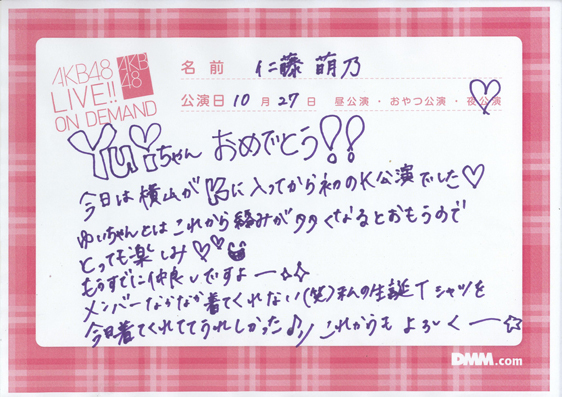 AKB48
LIVE!!
ON DEMAND
AKB
48
名前 仁藤萌乃
公演日 10月27日 昼公演・おやつ公演・夜公演
Yuiちゃん おめでとう!!
今日は横山がKに入ってから初のK公演でした♡
ゆいちゃんとはこれから絡みが多くなるとおもうので
とっても楽しみ♡♡
もうすでに仲良しですよー☆☆
メンバーなかなか着てくれない(笑)私の生誕Tシャツを
今日着てくれててうれしかった♪ これからもよろしくー☆
DMM.com